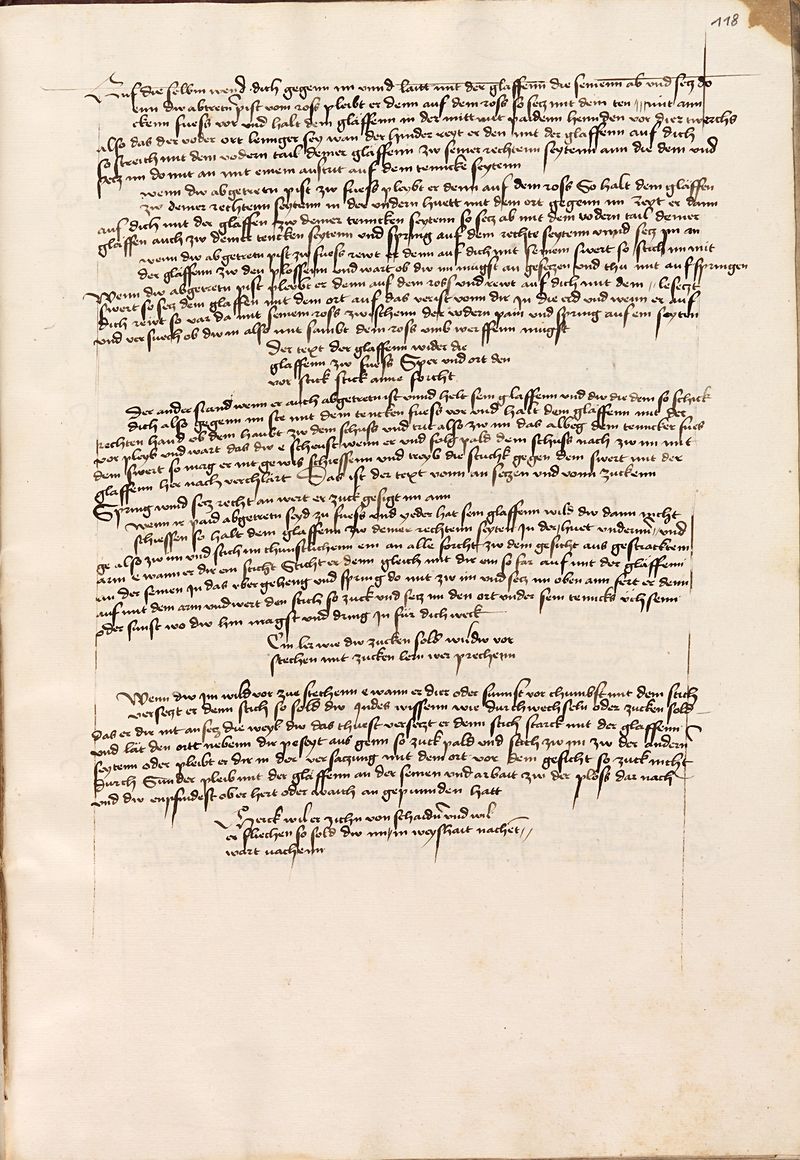 118
Auf die selbm wend dich gegenn im vnnd laitt mit der glaffenn die seinenn ab vnd secz do
enn dw abtretn pist vom ross pleibt er denn auf dem ross so secz mit dem ten // mit ann
ckenn fuess vor vnd halt dem glaffenn in der mitt mit paidenn hennden vor dier twerchs
also das der voder ort lenneger sey wan der hinder reyt er den mit der glaffenn auf dich
so streich mit dem vodern tail deiner glaffenn zw seiner rechtenn seytenn ann die dein vnd
secz im do mit an mit einem austrit auf dem tenncke seytenn
wenn dw abgetretn pist zw fuess pleybt er denn auf dem ross So halt dem glaffen
zw deiner rechtenn seytenn in der vndern huett mit dem ort gegenn im Reyt er dann
auf dich mit der glaffen zw deiner tenncken seytenn so secz ab mit dem vodern tail deiner
glaffen auch zw deiner tencken seytenn vnd spring auf dem rechte seytenn vnnd secz im an
wenn dw abgetretn pist zw fuess rewt er denn auf dich mit seinem swert so stich im mit
der glaffenn zw den plossenn vnd wart ob dw im mugst an geseczen vnd thu mit auf springen
Wenn dw abgetretn pist pleybt er denn auf dem ross vnd rewt auf dich mit dem // leseczt
swert so secz dem glaffen mit dem ort auf das verist vonn dir In die erd vnd wenn er auf
dich rewt so var da mit seinem ross zwischenn der vodern pain vnd spring auf ein seyten
vnd versuech ob dw in also mit sambt dem ross vmb werffenn mugst
Der text der glaffenn wider die
glaffenn zw fuess Sper vnd ort den
vor stich stich anne forcht
Der ander stand wenn er auch abgetretn ist vnnd helt sein glaffenn vnd dw die dein so schick
dich also gegenn im ste mit dem tencken fuess vor vnd halt dem glaffenn mit der
rechten hand ob dem haubt zw dem schuss vnd trit also zw im das albeg dem tenncker fues
vor pleyb vnd wart das dw e scheust wenn er vnd folg pald dem schuss nach zw im mit
dem swert so mag er nit gewis schiessenn vnd treyb die stuckh gegen dem swert mit der
glaffenn her nach verchlärt Das ist der text vonn an seczen vnd vonn zuckenn
Spring wind secz recht an wert er zuck gesigt im ann
Wenn ir paid abgetretn seyd zu fuess vnd yeder hat sein glaffenn wild dw dann nicht
schiessen so halt dem glaffenn zw deiner rechtenn seyten In der huet vndernn // vnd
ge also zw im vnd stich im thunstlichenn ein an alle forcht zw dem gesicht aus gestracktem
arm e wann er dir ein sticht Sticht er denn gleich mit dir ein so far auf mit der glaffenn
an der seinen In das vber geheng vnd spring do mit zw im vnd secz im oben ann fert er denn
auf mit dem arm vnd wert den stich so zuck vnd secz im den ort vnder sein tenncks vchsenn
oder sunst wo dw hin magst vnd dring in für dich weck
Ein ler wie dw zucken sold wildw vor
stechen mit zucken lern wer prechenn
Wenn dw im wild vor zue stechenn e wann er dier oder sunnst vor chumbst mit dem stich
verseczt er denn stich so sold dw Indes wissenn wie durchwechseln oder zucken sold
das er dir nit an secz die weyl dw das thuest verseczt er denn stich starck mit der glaffenn
vnd lät den ortt nebenn dir peseyt aus genn so zuck pald vnd stich zw im zw der andern
seytenn oder pleibt er dir in der versaczung mit dem ort vor dem gesicht so zuck nicht
durch Sunder pleib mit der glaffenn an der seinen vnd arbait zw der ploss dar nach
vnd dw enpfindest ober hert oder waich an gepunnden hatt
Merck wil er zichn von schaidn vnd wil
er fliechen so sold dw im in weyshait nachen //
wart nachenn